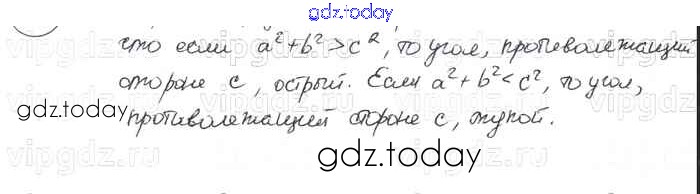 gdz.today
что если a²+b²>c², то угол, противолежащий
стороне c, острый. Если a²+b²<c², то угол,
gdz.today
противолежащий стороне c, тупой.
gdz.today
vipgdz.ru